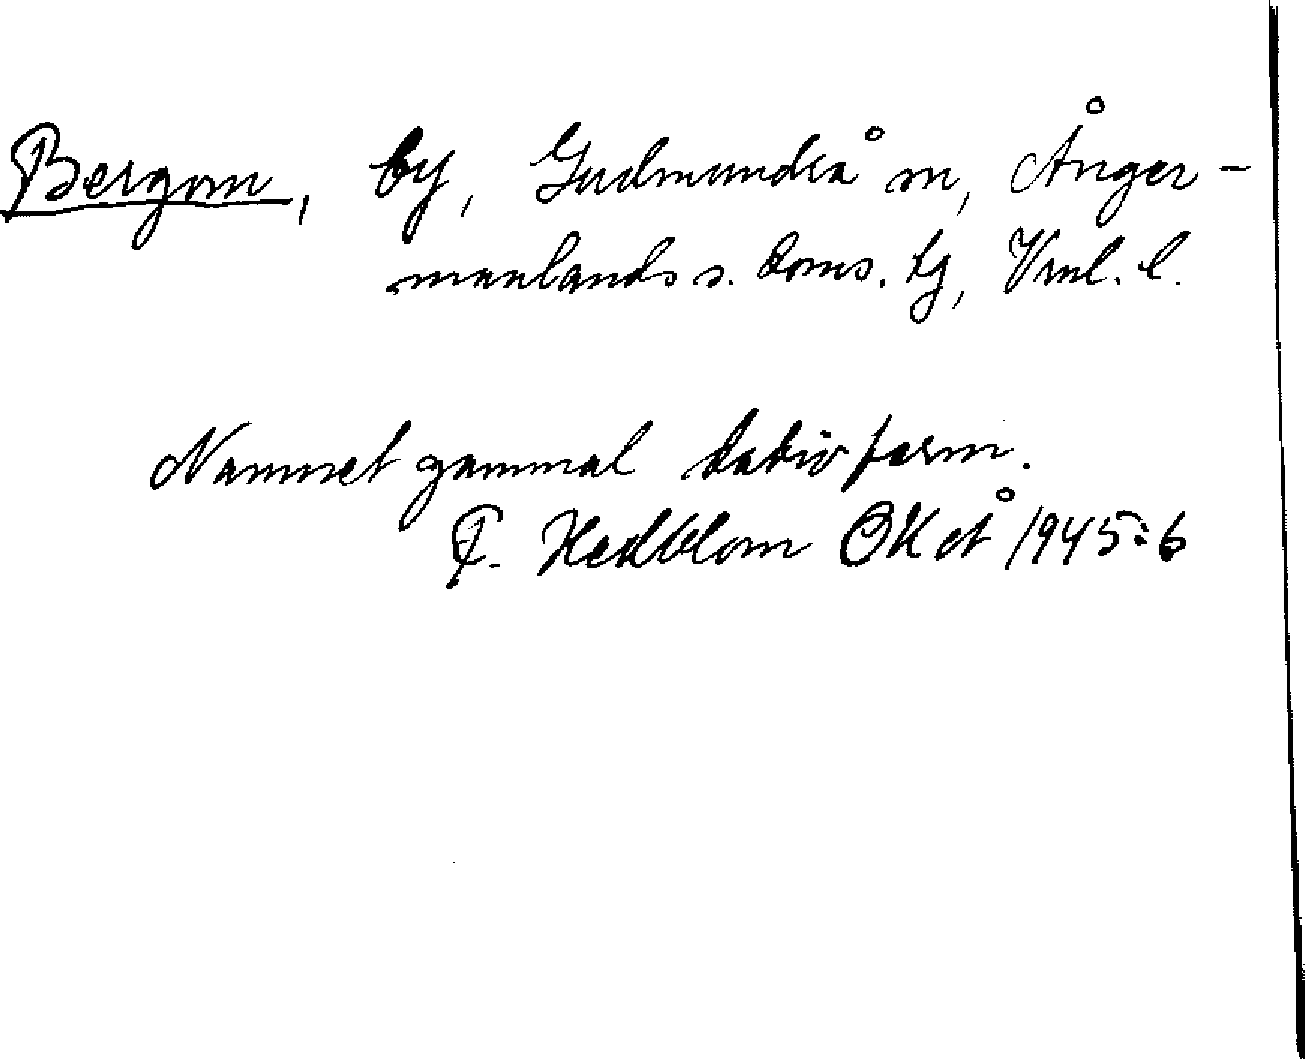 Bergom, by, Gudmundrå sn, Ånger-
manlands s. doms. tg, Vnl. l.
Namnet gammal dativform.
F. Hedblom OKoÅ 1945:6